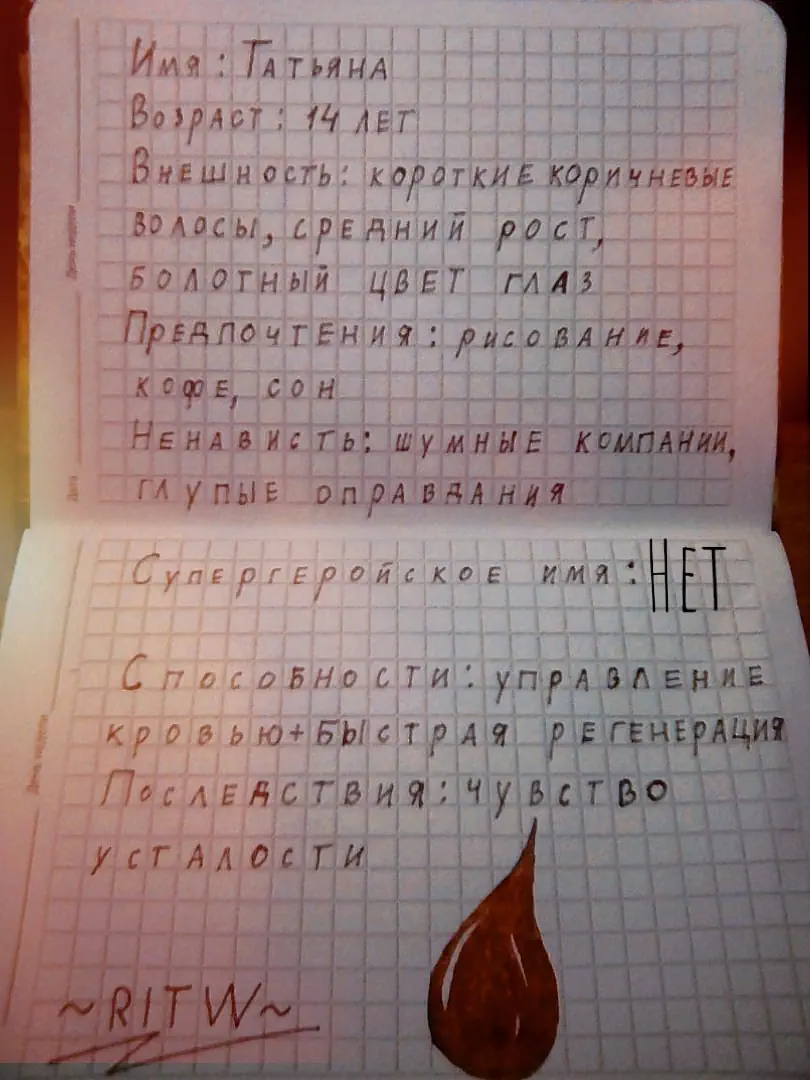 Имя: Татьяна
Возраст: 14 лет
Внешность: короткие коричневые
волосы, средний рост,
болотный цвет глаз
Предпочтения: рисование,
кофе, сон
Ненависть: шумные компании,
глупые оправдания
Супергеройское имя: НЕТ
Способности: управление
кровью+быстрая регенерация
Последствия: чувство
усталости
~RITW~